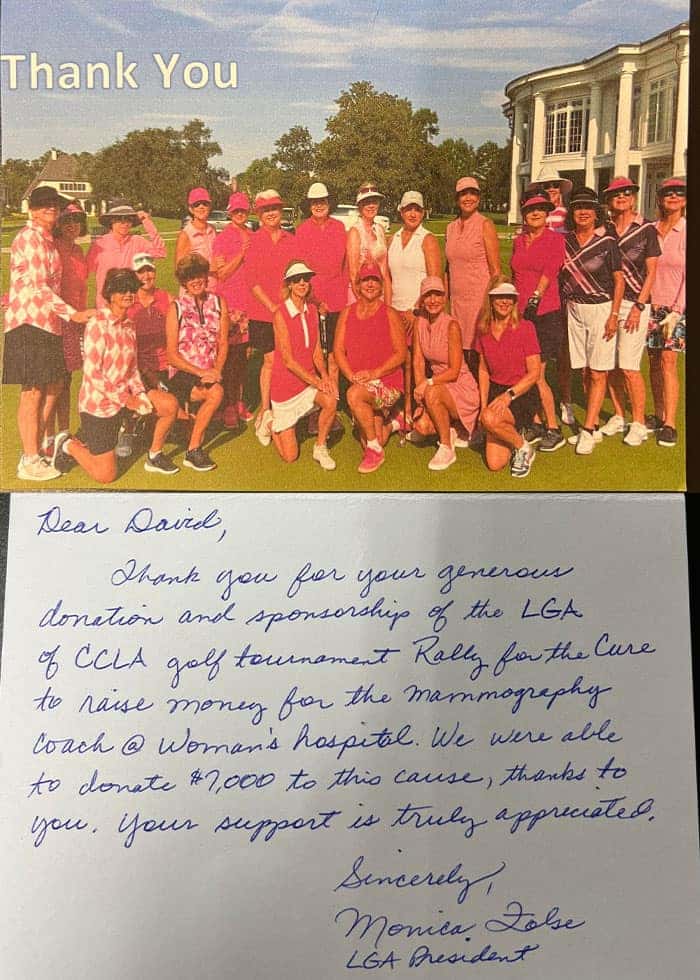 Thank You
Dear David,
Thank you for your generous
donation and sponsorship of the LGA
of CCLA golf tournament Rally for the Cure
to raise money for the mammography
coach @ Woman's hospital. We were able
to donate $7,000 to this cause, thanks to
you. Your support is truly appreciated.
Sincerely,
Monica Folse
LGA President